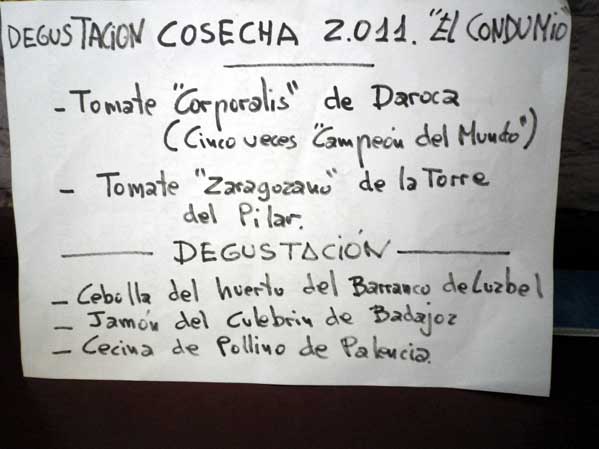 DEGUSTACION COSECHA 2.011. "El CONDUMIO
- Tomate "Corporalis" de Daroca
(Cinco veces "Campeón del Mundo")
- Tomate "Zaragozano" de la Torre
del Pilar.
DEGUSTACIÓN
- Cebolla del huerto del Barranco de Luzbel
- Jamón del Culebrin de Badajoz
- Cecina de Pollino de Palencia.